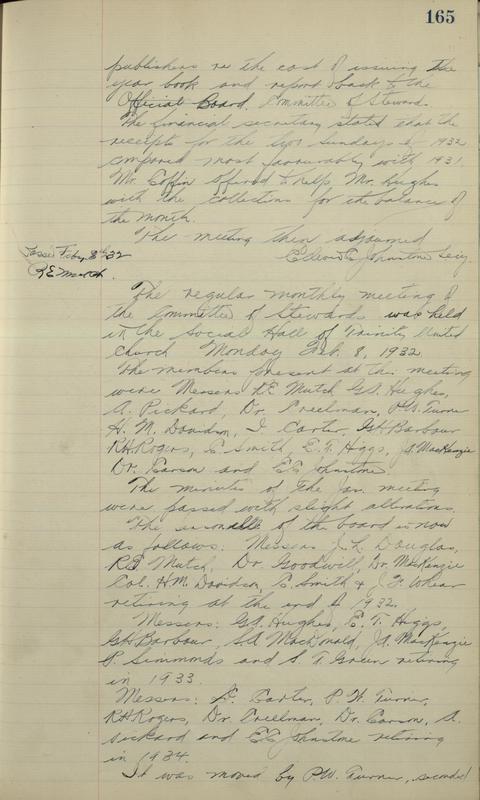 165
publishers re the cost of issuing the
year book and report back to the
Official Board, Committee of Stewards.
The financial secretary stated that the
receipts for the Sundays of 1932
compared most favourably with 1931.
Mr. Coffin offered to help Mr. Hughes
with the collections for the balance of
the month.
The meeting then adjourned
Johnstone Secy.
Feby 8th 32
R.E. Mutch.
The regular monthly meeting of
the Committee of Stewards was held
in the Social Hall of Trinity United
Church Monday Feb. 8, 1932
The members present at this meeting
were Messers R.E. Mutch G.A. Hughes,
A. Pickard, Dr. Creelman, P.W. Turner
H. M. Davidson, Carter, G.H. Barbour
R.H. Rogers, C. Smith, E.T. Higgs, J.A. MacKenzie
Dr. Carson and E.C. Johnstone.
The minutes of the Jan. meeting
were passed with slight alterations.
The personnelle of the board is now
as follows: Messers J.L. Douglas,
R.E. Mutch, Dr. Goodwill, Dr. MacKenzie
Col. H.M. Davidson, C. Smith & Whear
retiring at the end of 1932.
Messers: G.A. Hughes, E.T. Higgs,
G.H. Barbour, MacDonald, J.A. MacKenzie
Simmonds and S.T. Green retiring
in 1933.
Messers: Carter, P.W. Turner,
R.H. Rogers, Dr. Creelman, Dr. Carson, A.
Pickard and E.C. Johnstone retiring
in 1934.
It was moved by P.W. Turner, seconded